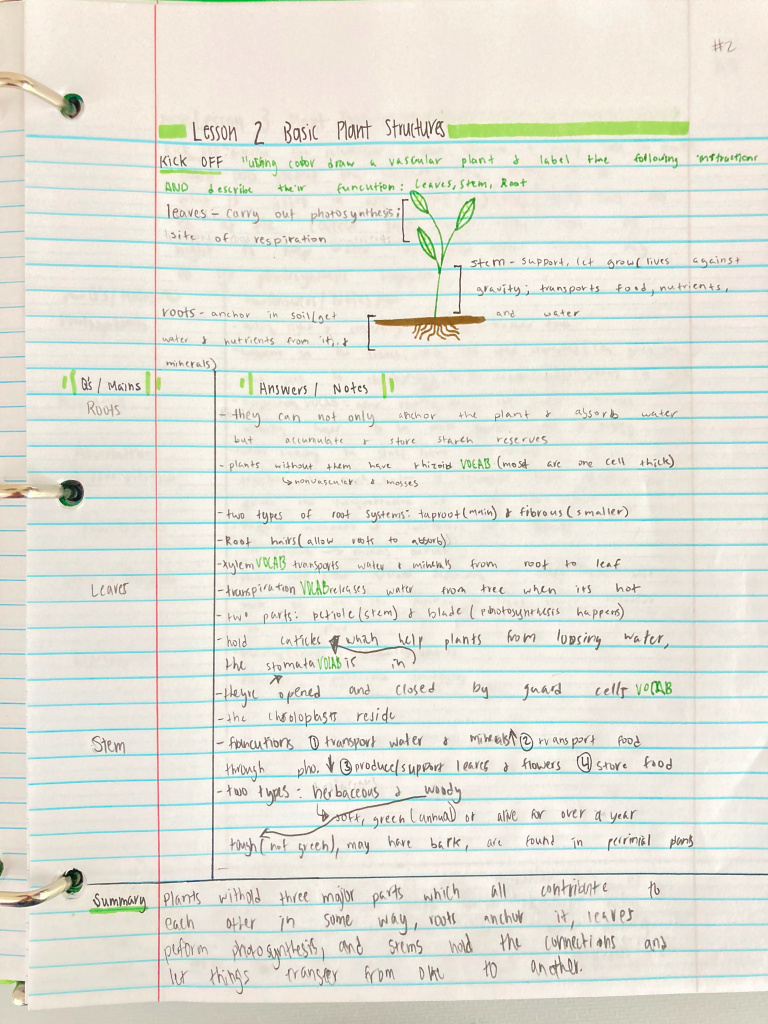 #2
Lesson 2 Basic Plant Structures
KICK OFF "using color draw a vascular plant & label the following instructions
AND describe their funcution: Leaves, Stem, Root
leaves - carry out photosynthesis;
site of respiration
stem - support, let grow/lives against
gravity; transports food, nutrients,
and water
roots - anchor in soil/get
water & nutrients from it, &
minerals)
Q's / Mains
Answers / Notes
Roots
- they can not only anchor the plant & absorb water
but accumulate & store starch reserves
- plants without them have rhizoid VOCAB (most are one cell thick)
↳ nonvascular & mosses
- two types of root systems: taproot (main) & fibrous (smaller)
- Root hairs (allow roots to absorb)
- xylem VOCAB transports water & minerals from root to leaf
Leaves
- transpiration VOCAB releases water from tree when its hot
- two parts: petiole (stem) & blade (photosynthesis happens)
- hold cuticles which help plants from loosing water,
the stomata VOCAB is in
- theyre opened and closed by guard cells VOCAB
- the chroloplasts reside
Stem
- funcutions ① transport water & minerals ↑ ② transport food
through pho. ↓ ③ produce/support leaves & flowers ④ store food
- two types: herbaceous & woody
↳ soft, green (annual) or alive for over a year
tough (not green), may have bark, are found in perinnial plants
-
Summary
Plants withold three major parts which all contribute to
each other in some way, roots anchor it, leaves
perform photosynthesis, and stems hold the connections and
let things transfer from one to another.